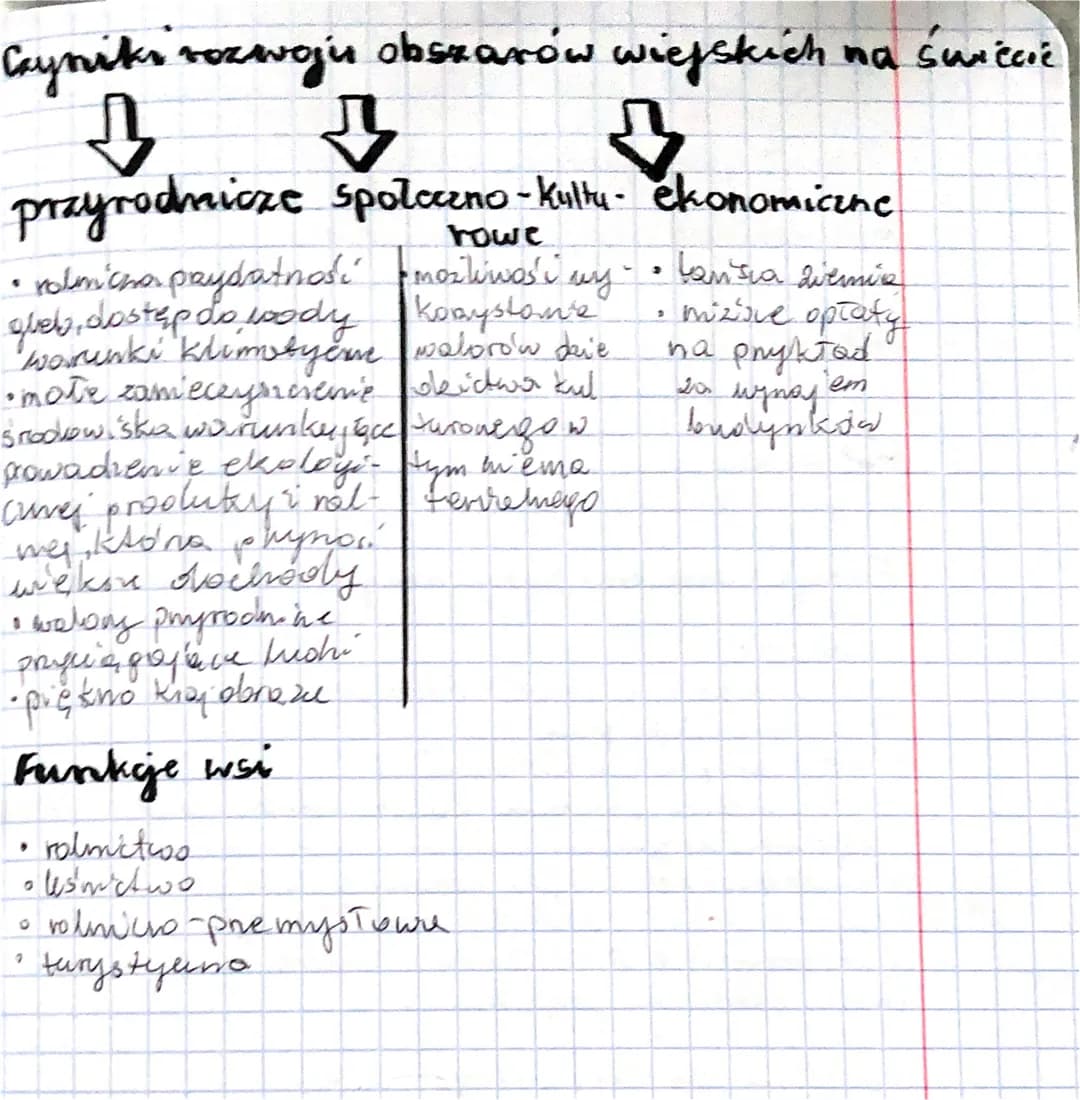 Czyniki rozwoju obszarów wiejskich na świecie
przyrodnicze społeczno-kultu- ekonomiczne
rowe
• rolnicza przydatność
gleb, dostęp do wody
warunki klimatyczne
• małe zanieczyszczenie
środowiska warunkujące
prowadzenie ekologi-
cznej produkcji rol-
nej, która przynosi
większe dochody
• walory przyrodnicze
przyciągające ludzi
• piękno krajobrazu
• możliwości wy-
korzystania
walorów dzie
dzictwa kul
turowego w
tym niema
terialnego
• tańsza ziemia
• niższe opłaty
na przykład
za wynajem
budynków
Funkcje wsi
• rolnictwo
• leśnictwo
• rolniczo-przemysłowe
• turystyczna